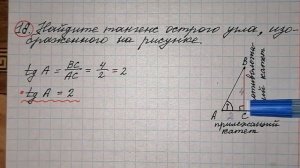 18. Найдите тангенс острого угла, изо-
браженного на рисунке.
tg A = BC/AC = 4/2 = 2
tg A = 2
B
4
противолежа-
щий катет
A 2 C
прилежащий
катет